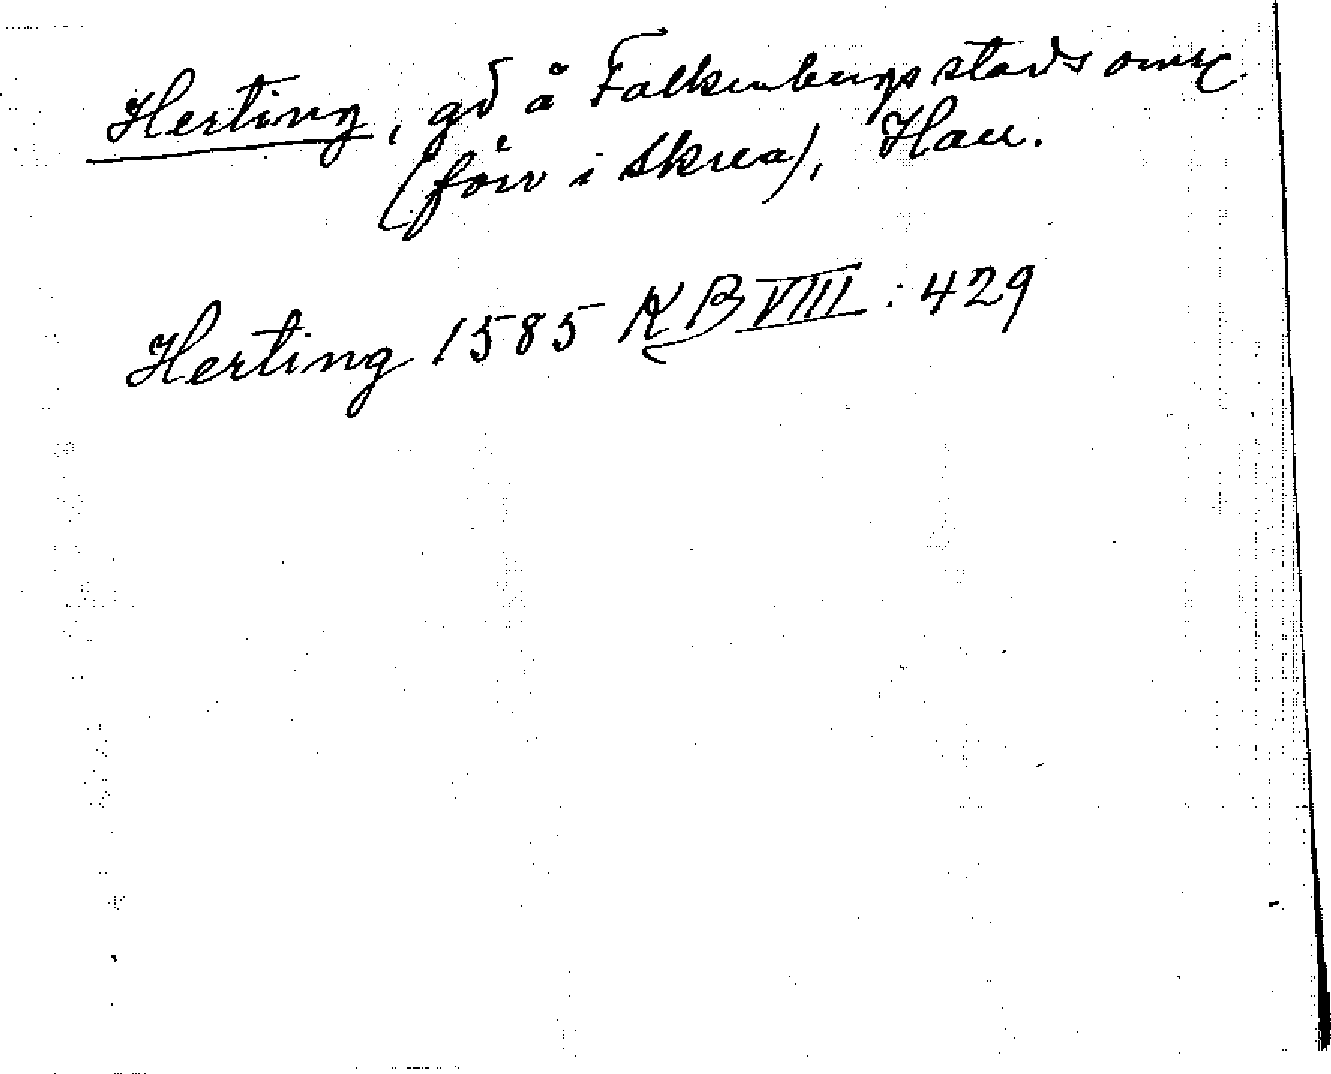 Herting, gd å Falkenbergs stads omr
(förr i Skrea), Hall.
Herting 1585 KB VIII: 429